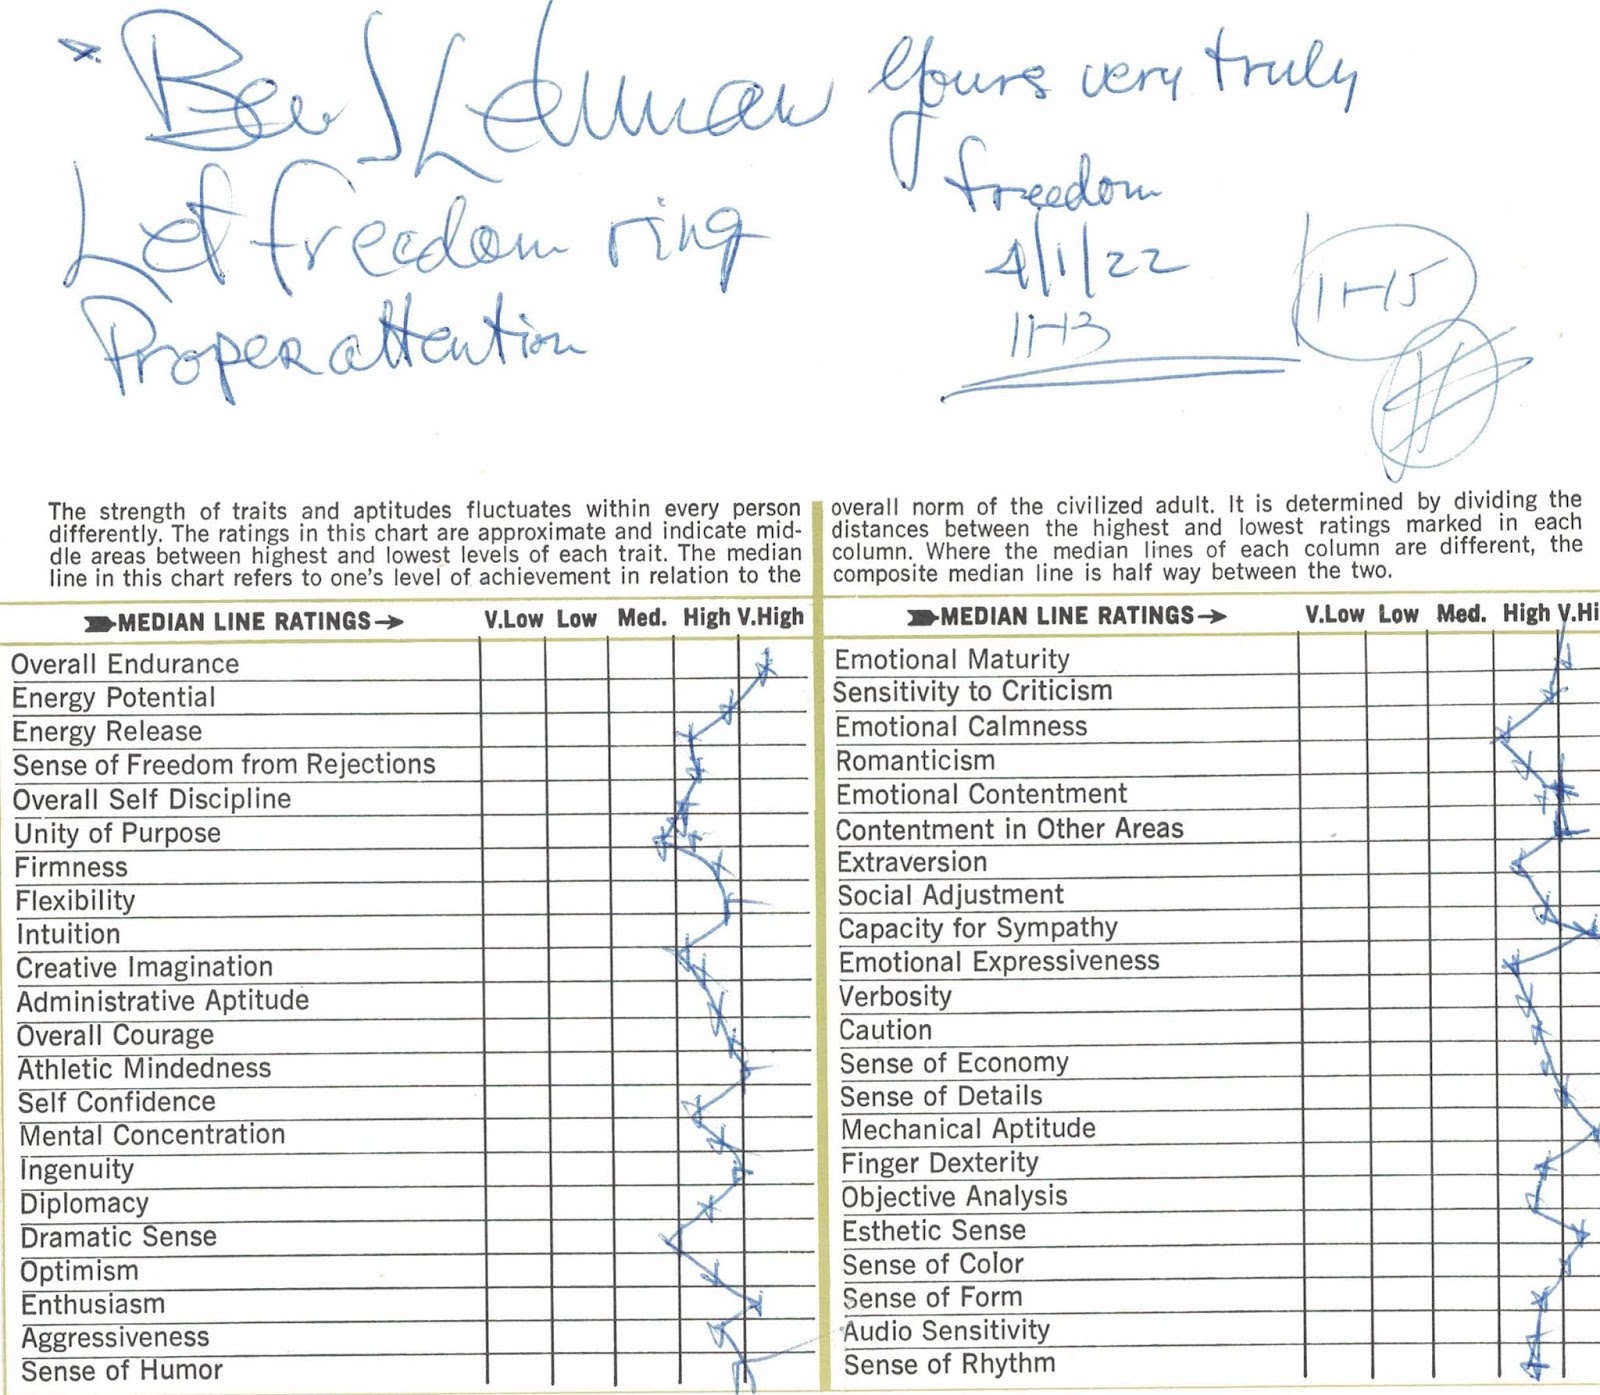 Ben S Lehman
Yours very truly
Let freedom ring
freedom
Proper attention
4/1/22
11-13
11-15
The strength of traits and aptitudes fluctuates within every person
differently. The ratings in this chart are approximate and indicate mid-
dle areas between highest and lowest levels of each trait. The median
line in this chart refers to one's level of achievement in relation to the
overall norm of the civilized adult. It is determined by dividing the
distances between the highest and lowest ratings marked in each
column. Where the median lines of each column are different, the
composite median line is half way between the two.
MEDIAN LINE RATINGS V.Low Low Med. High V.High
Overall Endurance
Energy Potential
Energy Release
Sense of Freedom from Rejections
Overall Self Discipline
Unity of Purpose
Firmness
Flexibility
Intuition
Creative Imagination
Administrative Aptitude
Overall Courage
Athletic Mindedness
Self Confidence
Mental Concentration
Ingenuity
Diplomacy
Dramatic Sense
Optimism
Enthusiasm
Aggressiveness
Sense of Humor
MEDIAN LINE RATINGS V.Low Low Med. High V.Hi
Emotional Maturity
Sensitivity to Criticism
Emotional Calmness
Romanticism
Emotional Contentment
Contentment in Other Areas
Extraversion
Social Adjustment
Capacity for Sympathy
Emotional Expressiveness
Verbosity
Caution
Sense of Economy
Sense of Details
Mechanical Aptitude
Finger Dexterity
Objective Analysis
Esthetic Sense
Sense of Color
Sense of Form
Audio Sensitivity
Sense of Rhythm